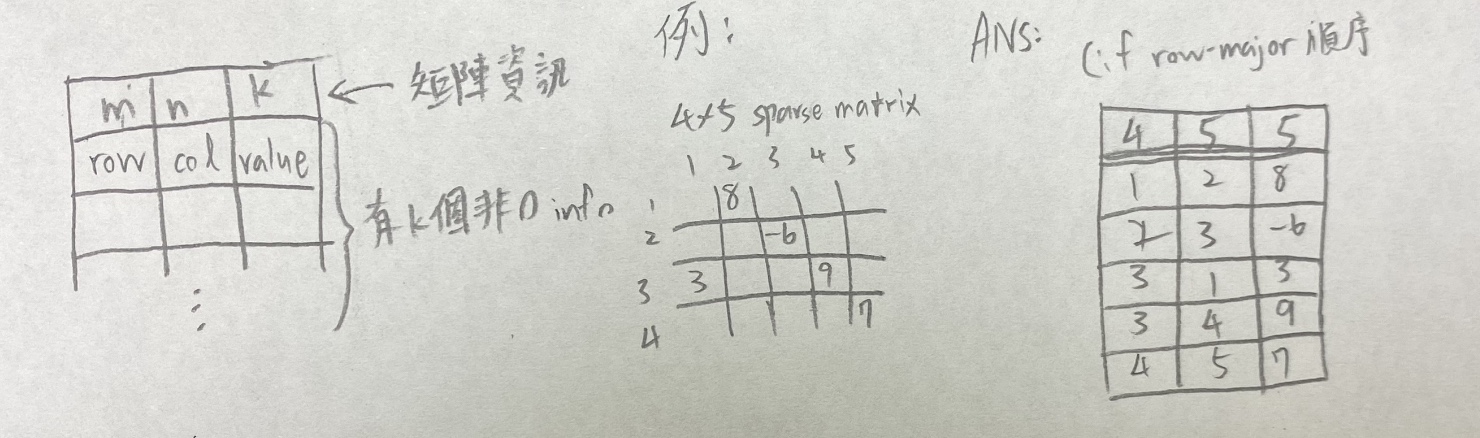 m n k ← 矩陣資訊
row col value
有k個非0 info
⋮
例:
4×5 sparse matrix
1 2 3 4 5
1 8
2 -6
3 3 9
4 7
ANS: (if row-major 順序
4 5 5
1 2 8
2 3 -6
3 1 3
3 4 9
4 5 7